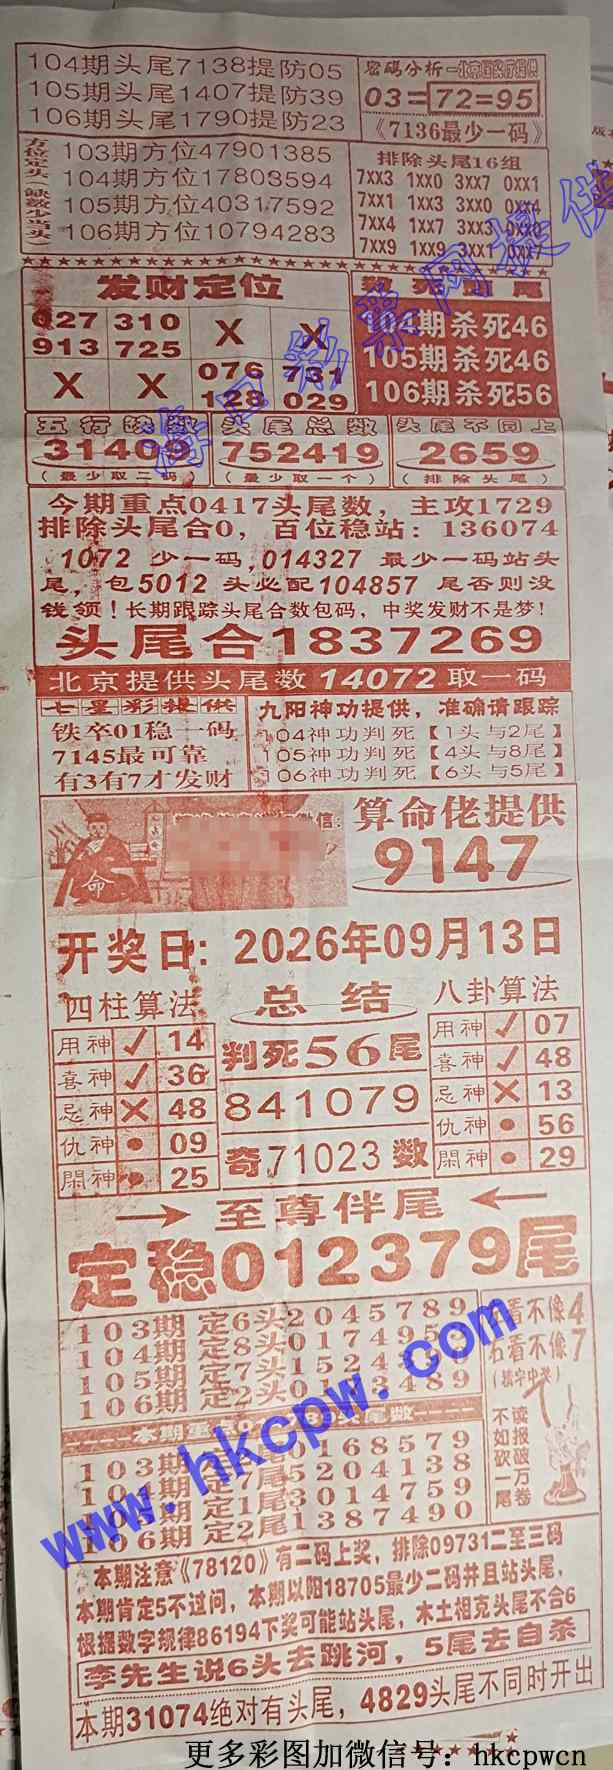 104期头尾7138提防05
105期头尾1407提防39
106期头尾1790提防23
密码分析-北京国彩厅提供
03=72=95
《7136最少一码》
方位定头(缺数少当头)
103期方位47901385
104期方位17803594
105期方位40317592
106期方位10794283
排除头尾16组
7XX3 1XX0 3XX7 0XX1
7XX1 1XX3 3XX0 0XX4
7XX4 1XX7 3XX3 0XX0
7XX9 1XX9 3XX1 0XX7
发财定位
027 310 X X
913 725
X X 076 731
128 029
104期杀死46
105期杀死46
106期杀死56
五行缺数
31409
(最少取二码)
头尾总数
752419
(最少取一个)
头尾不同上
2659
(排除头尾)
今期重点0417头尾数，主攻1729
排除头尾合0，百位稳站：136074
1072 少一码,014327 最少一码站头
尾，包5012 头必配104857 尾否则没
钱领！长期跟踪头尾合数包码，中奖发财不是梦！
头尾合1837269
北京提供头尾数14072取一码
七星彩提供
铁卒01稳一码
7145最可靠
有3有7才发财
九阳神功提供，准确请跟踪
104神功判死【1头与2尾】
105神功判死【4头与8尾】
106神功判死【6头与5尾】
命
微信：
算命佬提供
9147
开奖日：2026年09月13日
四柱算法
用神 ✓ 14
喜神 ✓ 36
忌神 ✕ 48
仇神 ● 09
閑神 ● 25
总结
判死56尾
841079
奇71023数
八卦算法
用神 ✓ 07
喜神 ✓ 48
忌神 ✕ 13
仇神 ● 56
閑神 ● 29
至尊伴尾
定稳012379尾
103期定6头2045789
104期定8头
105期定7头
106期定2头
左看不像4
右看不像7
(填字中奖)
读报破万卷
不如砍一尾
103期 0168579
定7尾5204138
定1尾3014759
106期定2尾1387490
本期注意《78120》有二码上奖，排除09731二至三码
本期肯定5不过问，本期以阳18705最少二码并且站头尾，
根据数字规律86194下奖可能站头尾，木土相克头尾不合6
李先生说6头去跳河，5尾去自杀
本期31074绝对有头尾，4829头尾不同时开出
海口彩票网提供
www.hkcpw.com
更多彩图加微信号：hkcpwcn